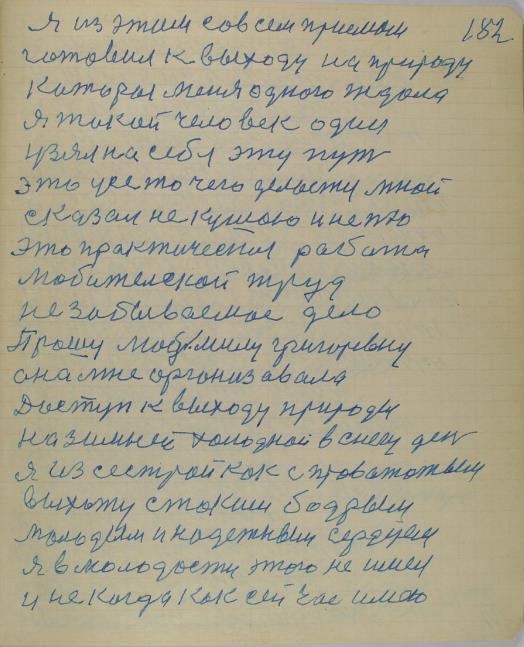 182.
Я из этим совсем приемом
готовил к выходу на природу
Которая меня одного ждала
Я такой человек один
узял на себя эту путь
это усе то чего
сказал не кушаю и не пю
Это практическая работа
Любительской труд
незабываемое дело
Прошу Людмилу Григоревну
она мне организавала
Доступ к выходу природы
на зимней холодной в снегу
я из сестрой как с провожатым
выхожу с таким бодрым
молодым и надежным сердцем
Я в молодости этого не имел
и не когда как сей час имею